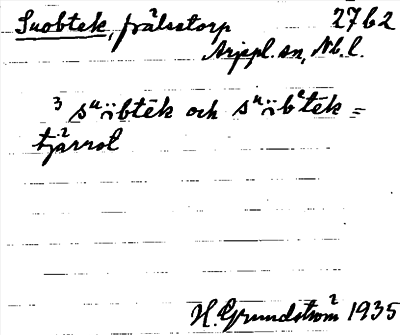 Suobtek, frälsetorp 2762
Arjepl. sn, Nb. l.
3 sᵘöbtēk och sᵘöbᵉtēk =
tjärrol
H. Grundström 1935